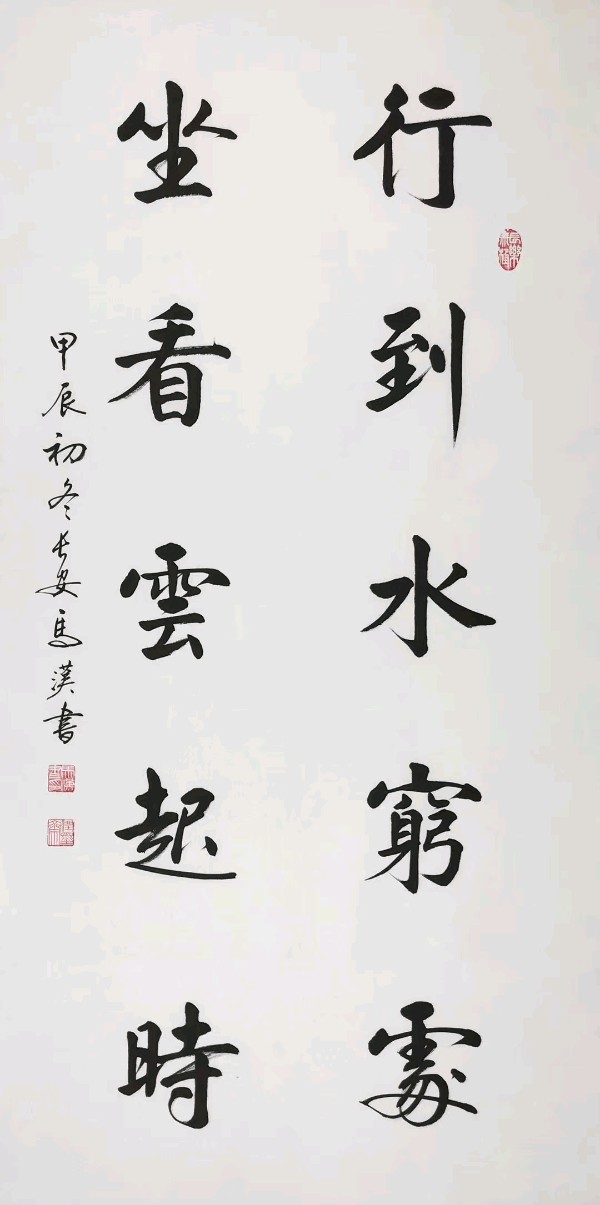 行到水窮處
坐看雲起時
甲辰初冬长安馬漢书